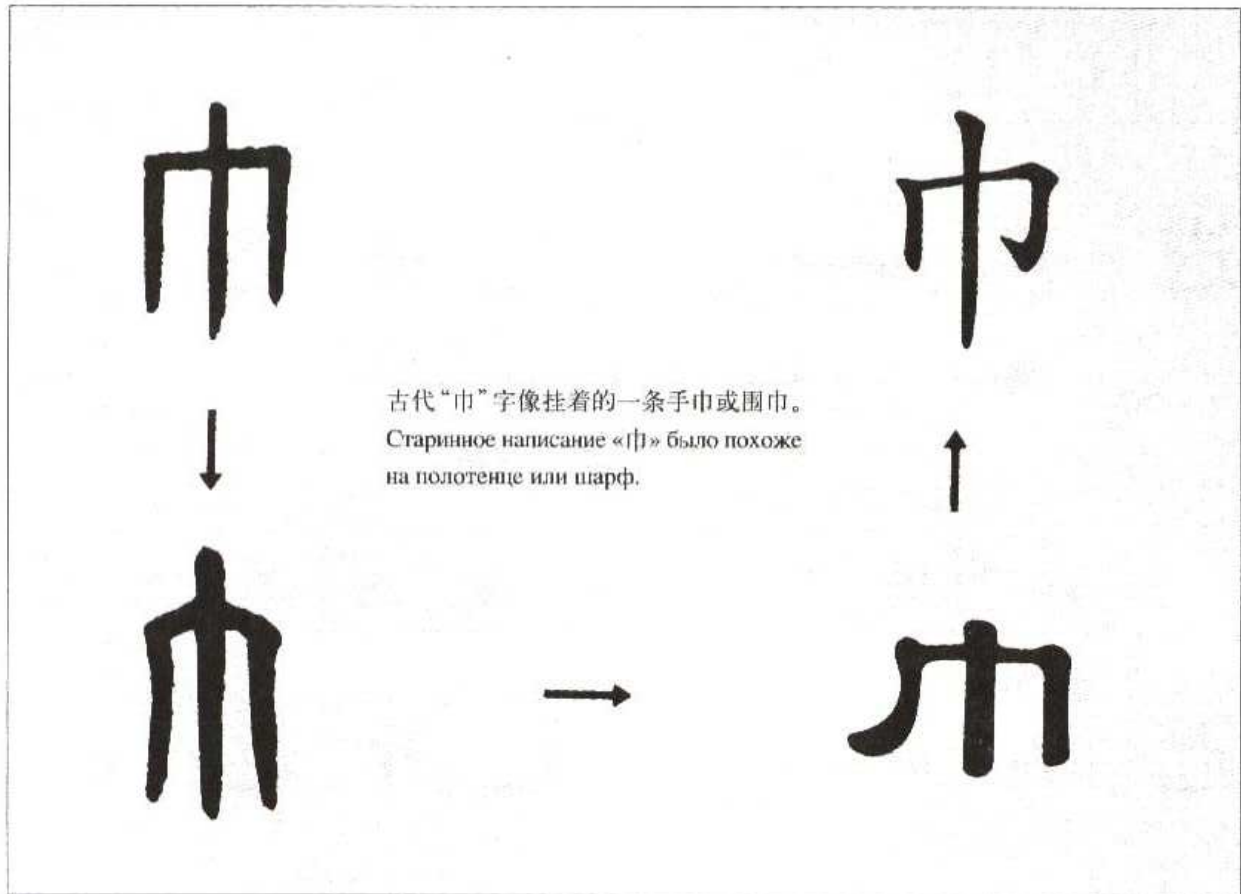 巾
巾
巾
巾
古代“巾”字像挂着的一条手巾或围巾。
Старинное написание «巾» было похоже
на полотенце или шарф.